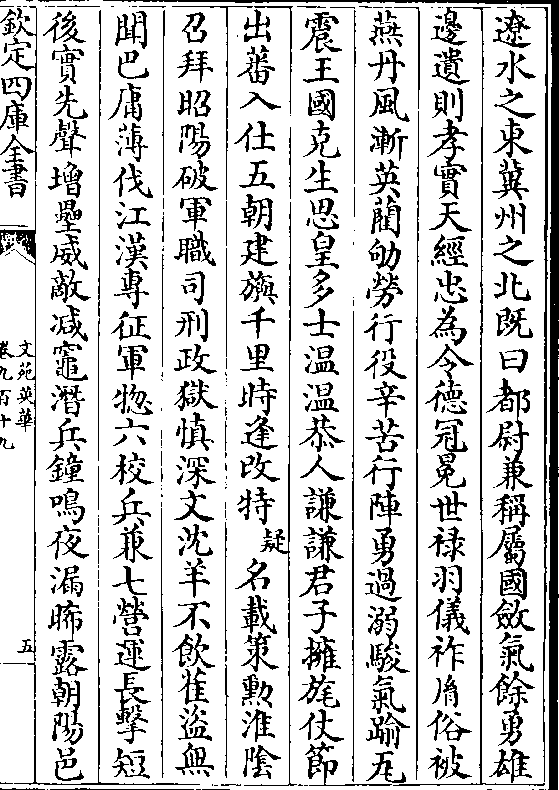 遼水之東冀州之北既曰都尉兼稱屬國斂氣餘勇雄
邊遺則孝實天經忠為令德冠冕世禄羽儀祚𦙍俗被
燕丹風漸英藺劬勞行役辛苦行陣勇過溺驂氣踰瓦
震王國克生思皇多士温温恭人謙謙君子擁旄仗節
出蕃入仕五朝建旟千里時逢改特疑名載策勲淮陰
召拜昭陽破軍職司刑政獄慎深文沈羊不飲萑盜無
聞巴庸薄伐江漢專征軍惣六校兵兼七營運長擊短
後實先聲增壘威敵减竈潛兵鐘鳴夜漏晞露朝陽邑
欽定四庫全書
文苑英華
卷九百十九
五